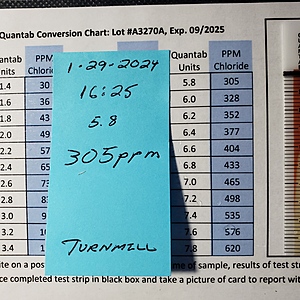 Quantab Conversion Chart: Lot #A3270A, Exp. 09/2025
Quantab Units PPM Chloride
PPM Chloride
1.4 30
1.6 36
1.8 43
2.0 49
2.2 57
2.4 65
2.6 73
2.8
3.0 9
3.2
3.4 1
1-29-2024
16:25
5.8
305ppm
TURNMILL
Quantab Units PPM Chloride
5.8 305
6.0 328
6.2 352
6.4 377
6.6 404
6.8 433
7.0 465
7.2 498
7.4 535
7.6 576
7.8 620
of sample, results of test strip
ce completed test strip in black box and take a picture of card to report with